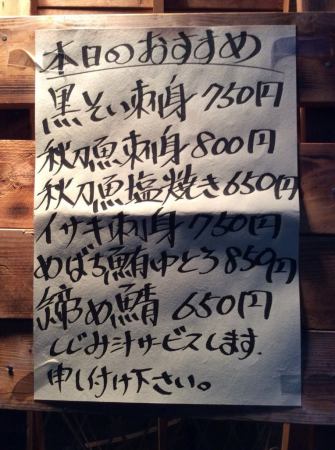 本日のおすすめ
黒そい刺身750円
秋刀魚刺身800円
秋刀魚塩焼き650円
イサキ刺身750円
めばち鮪中とろ850円
〆め鯖650円
しじみ汁サービスします.
申し付け下さい。